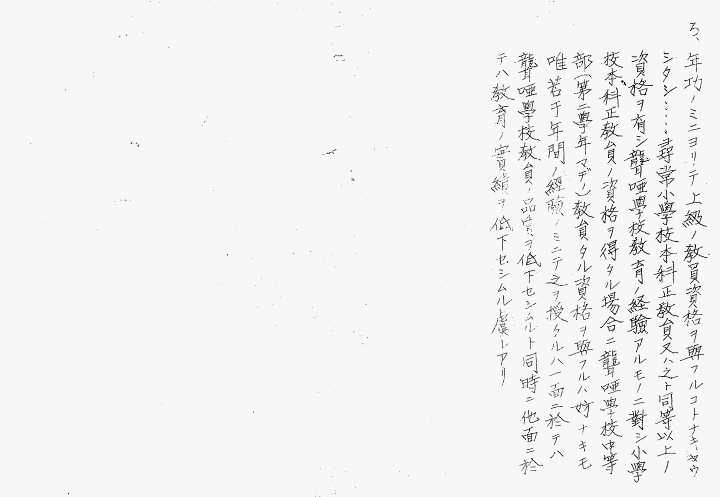 ろ、年功ノミニヨリテ上級ノ教員資格ヲ與フルコトナキヤウ
シタシ……尋常小學校本科正教員又ハ之ト同等以上ノ
資格ヲ有シ聾啞學校教育ノ経驗アルモノニ對シ小學
校本科正教員ノ資格ヲ得タル場合ニ聾啞學校中等
部(第二學年マデノ)教員タル資格ヲ與フルハ妨ナキモ
唯若干年間ノ経驗ノミニテ之ヲ授クルハ一面ニ於テハ
聾啞學校教員ノ品質ヲ低下セシムルト同時ニ他面ニ於
テハ教育ノ實績ヲ低下セシムル虞レアリ